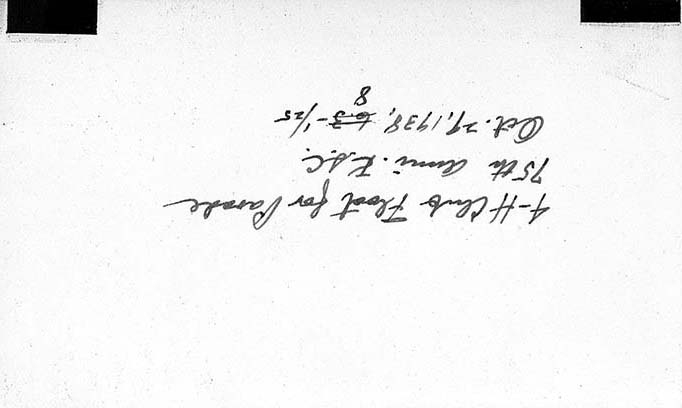 4-H Club Float for Parade
75th Anni. K.S.C.
Oct. 29, 1938, 6.3 - 1/25
8